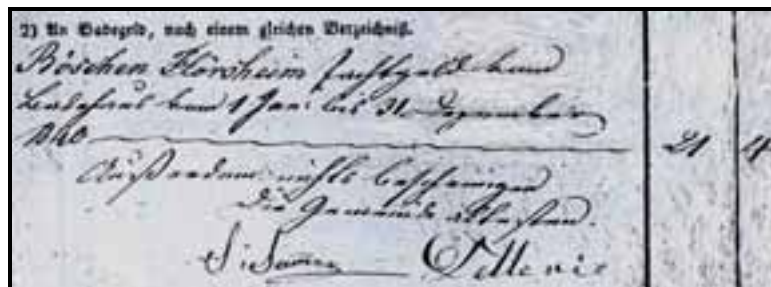 2) An Badegeld, nach einem gleichen Verzeichniß.
Röschen Flörsheim Pachtgeld vom
Badehaus vom 1 Jan: bis 31 Dezember
1840 21 4
Außerdem nichts bescheinigen
Die Gemeinde ältesten.